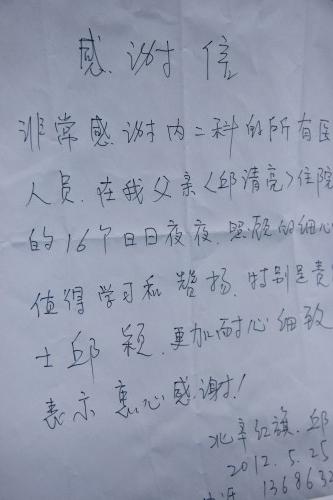 感谢信
非常感谢内二科的所有医
人员.在我父亲<邱清亮>住院
的16个日日夜夜.照顾的细心
值得学习和赞扬.特别是责
士邱颖.更加耐心细致
表示衷心感谢!
北辛红旗.邱
2012.5.25
电话 136863